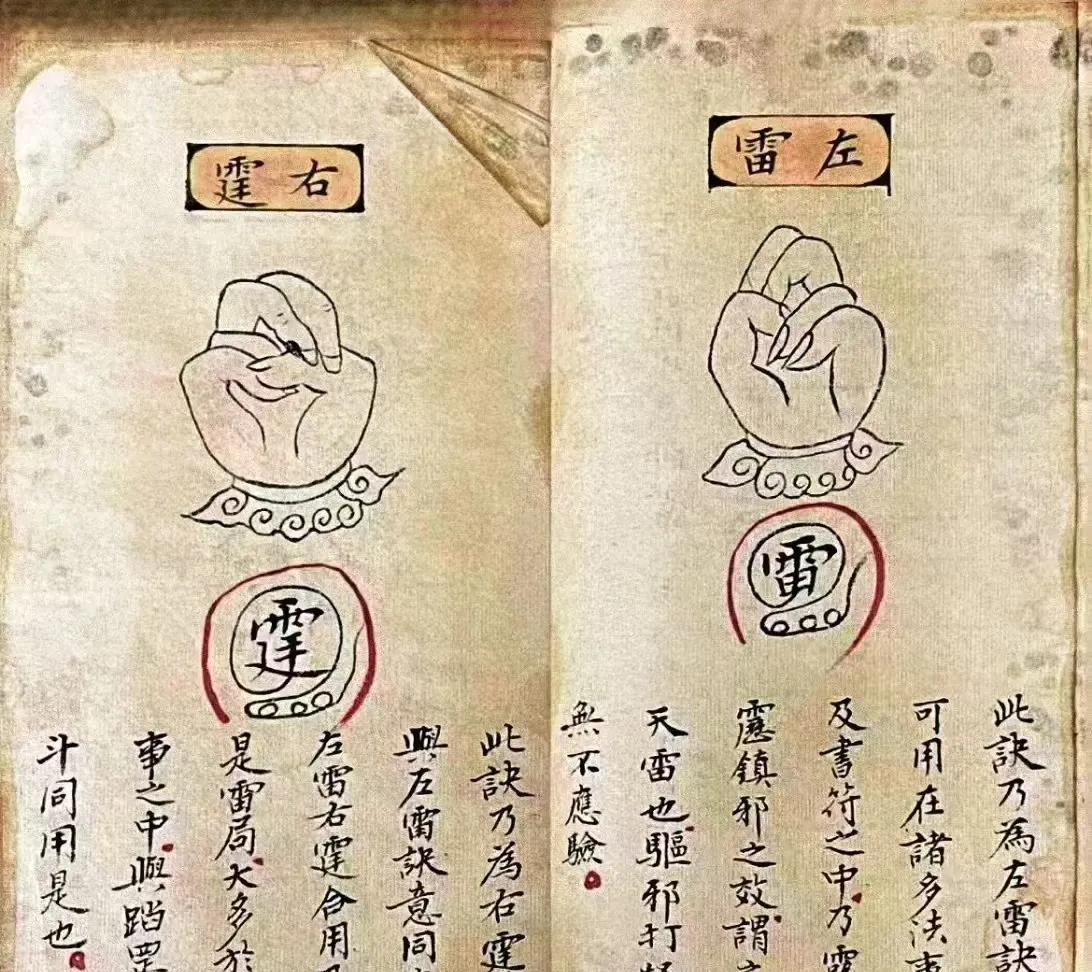 左雷
雷
此訣乃為左雷訣
可用在諸多法事
及書符之中乃
鎮邪之效謂
天雷也驅邪打
無不應驗
右霆
霆
此訣乃為右霆
與左雷訣意同
左雷右霆合用
是雷局大多於
事之中與踏罡
斗同用是也